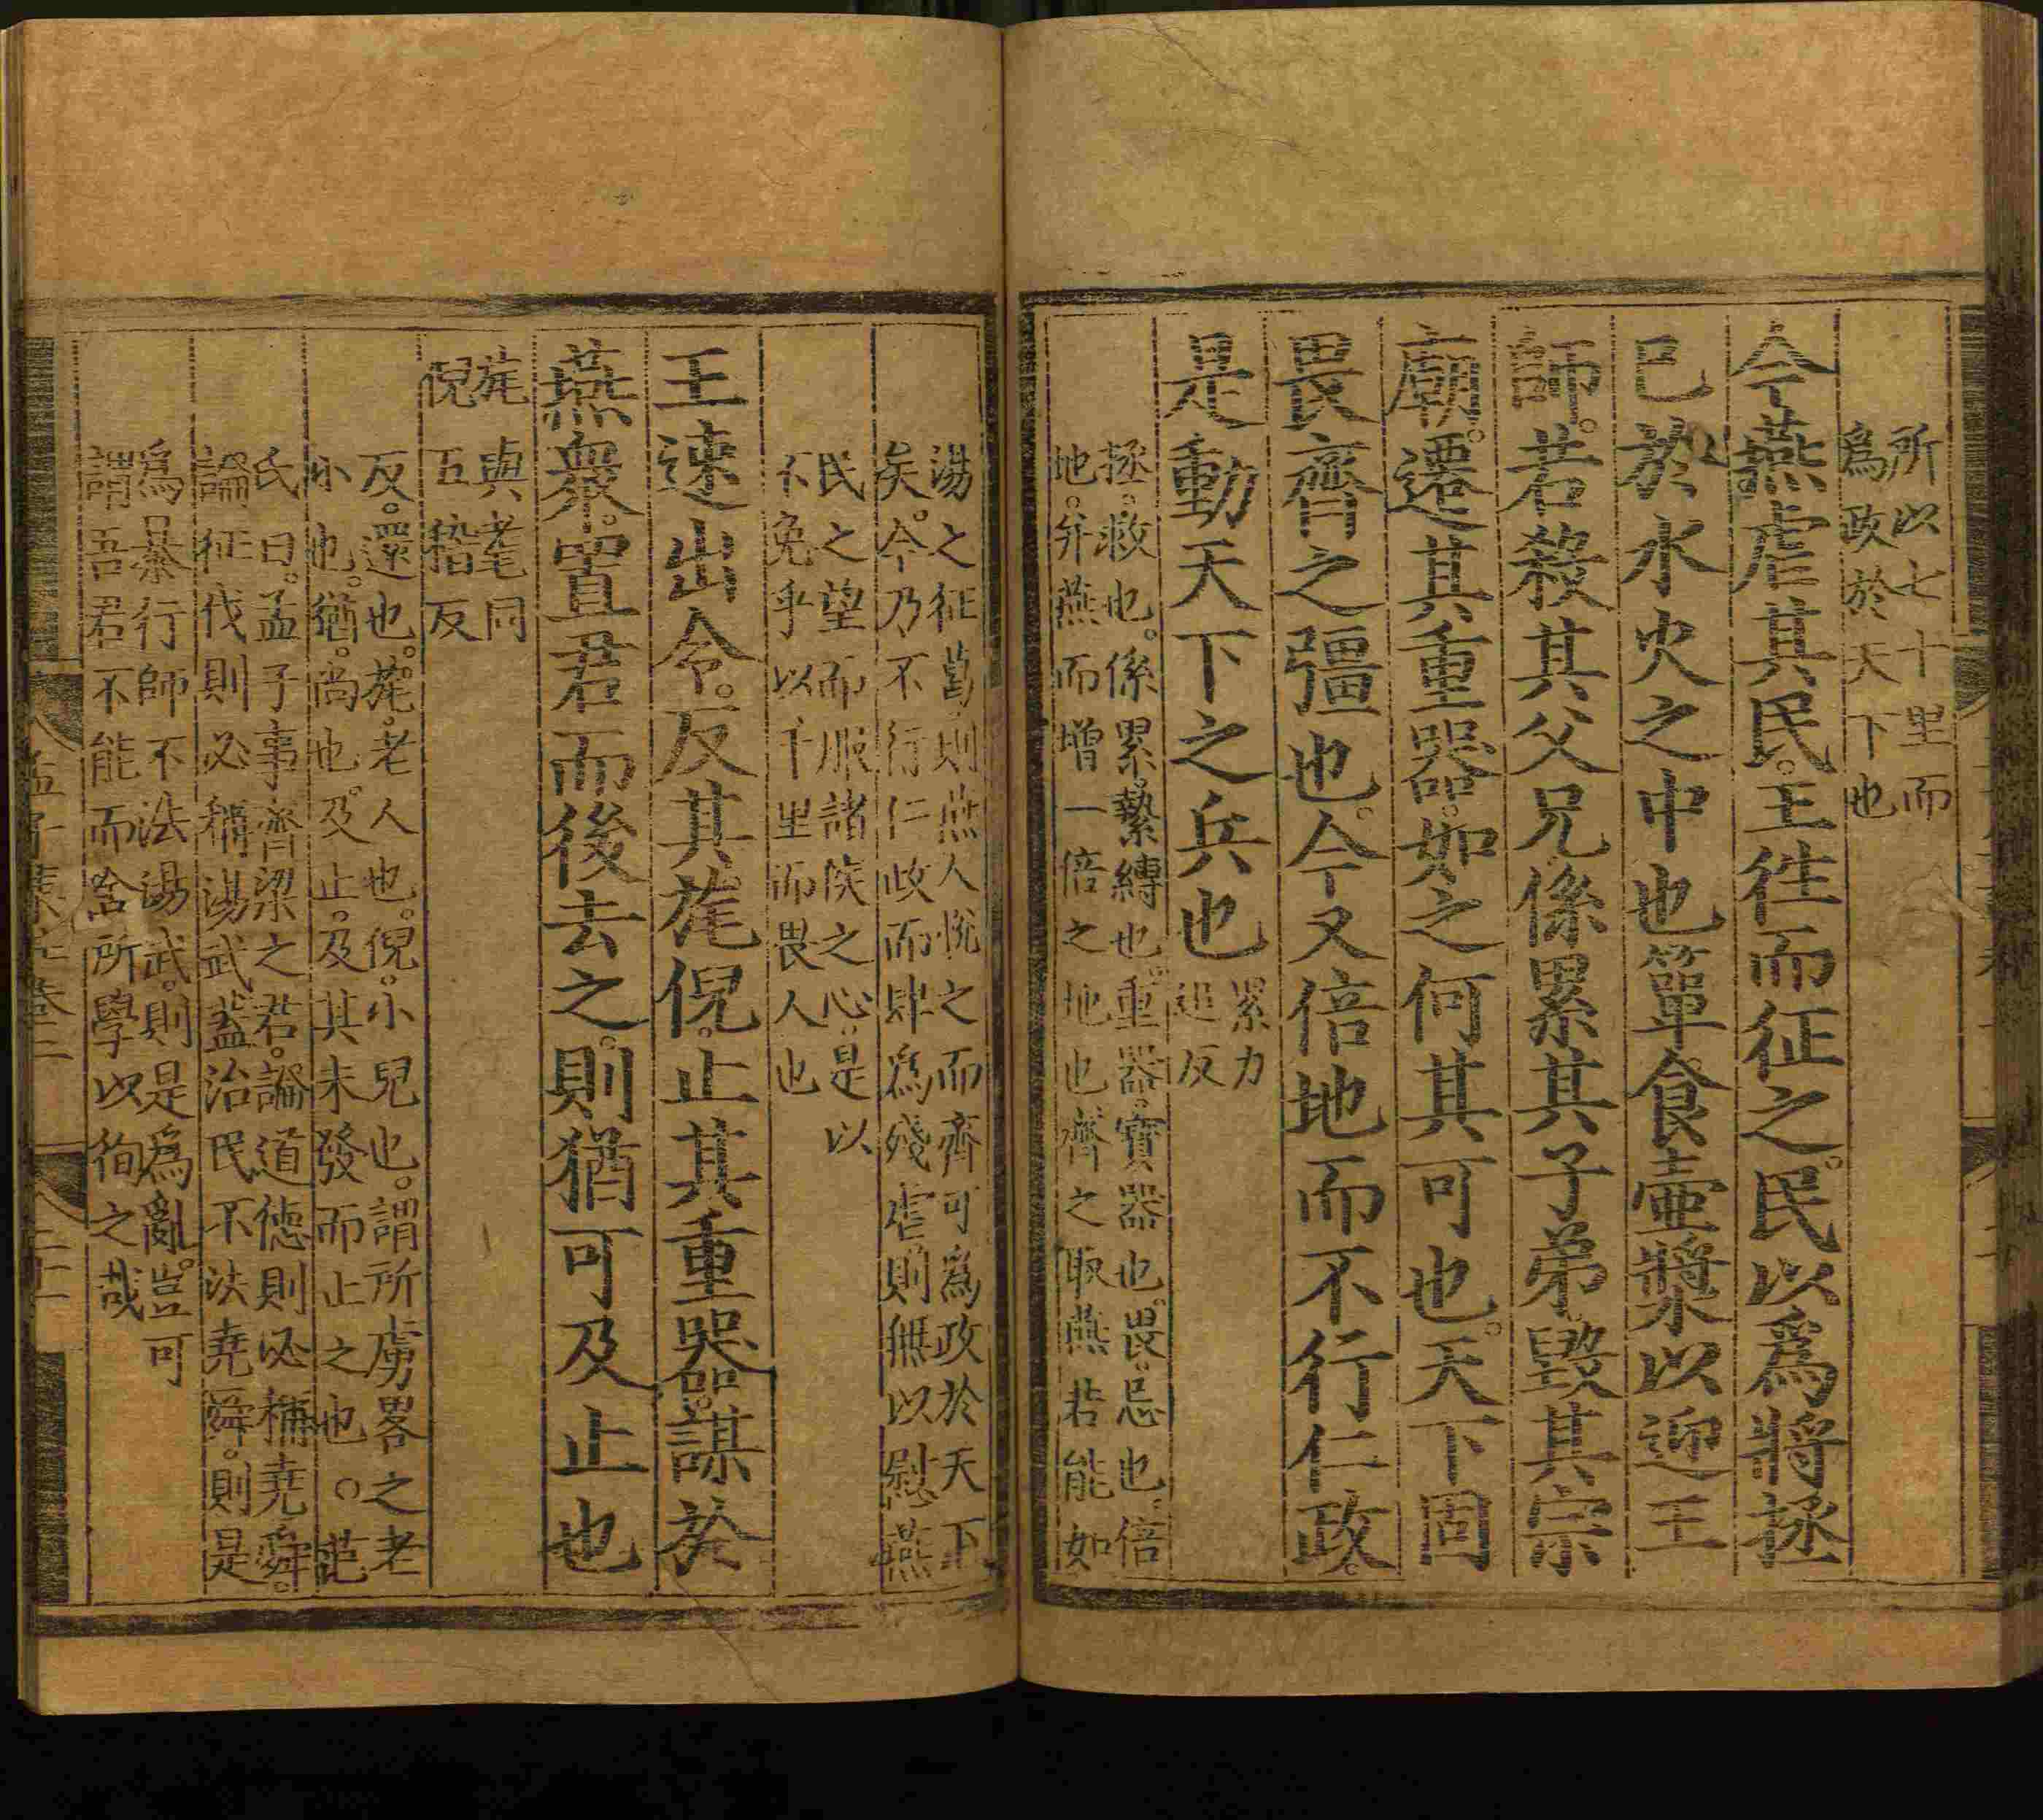 所以七十里而
爲政於天下也
今燕虐其民。王往而征之。民以爲將拯
己於水火之中也簞食壷漿以迎王
師。若殺其父兄係累其子弟毀其宗
廟。遷其重器。如之何其可也。天下固
畏齊之彊也。今又倍地而不行仁政。
是動天下之兵也
累力
追反
拯。救也。係累。縶縛也。重器。寶器也。畏。忌也。倍
地。并燕而增一倍之地也齊之取燕若能如
湯之征葛則燕人悅之而齊可爲政於天下
矣。今乃不行仁政而肆爲殘虐則無以慰燕
民之望而服諸侯之心。是以
不免乎以千里而畏人也
王速出令。反其旄倪。止其重器。謀於
燕衆。置君而後去之。則猶可及止也
旄與耄同
倪五稽反
反。還也。旄。老人也。倪。小兒也。謂所虜畧之老
小也。猶。尚也。及止。及其未發而止之也。○范
氏曰。孟子事齊梁之君。論道德則必稱堯舜。
論征伐則必稱湯武蓋治民不法堯舜。則是
爲暴行師不法湯武。則是爲亂。豈可
謂吾君不能而舍所學以徇之哉